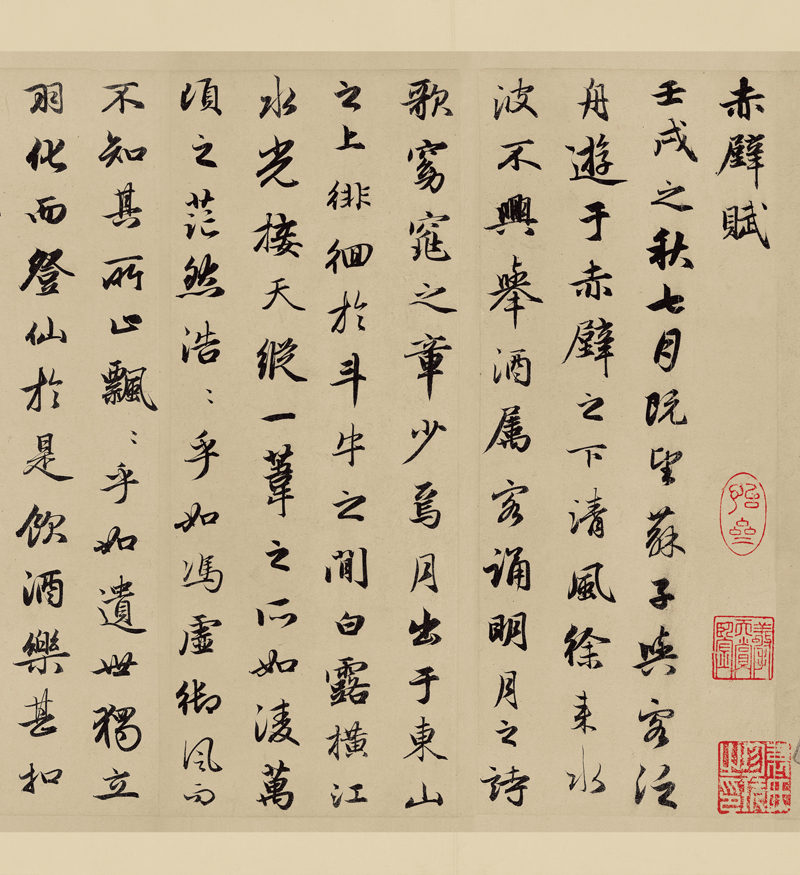 赤壁賦
壬戌之秋七月既望蘇子與客泛
舟遊于赤壁之下清風徐來水
波不興舉酒屬客誦明月之詩
歌窈窕之章少焉月出于東山
之上徘徊於斗牛之間白露橫江
水光接天縱一葦之所如凌萬
頃之茫然浩〻乎如馮虛御風而
不知其所止飄〻乎如遺世獨立
羽化而登仙於是飲酒樂甚扣